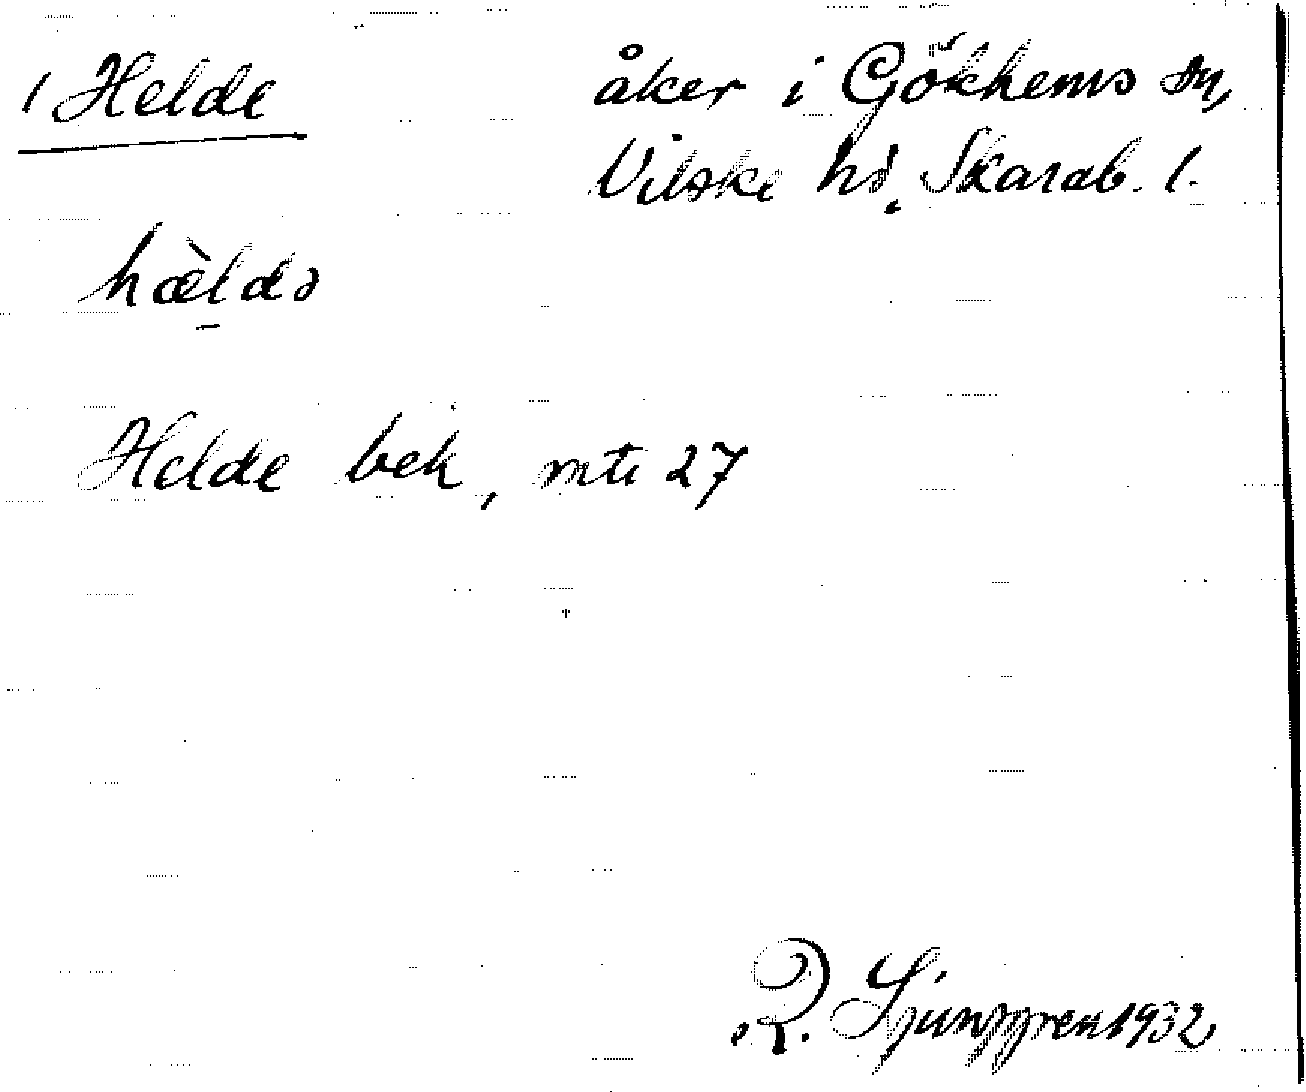 / Helde
åker i Gökhems sn,
Vilske hd, Skarab. l.
hæ̀ldɔ
Helde bek, mti 27
R. Ljunggren 1932